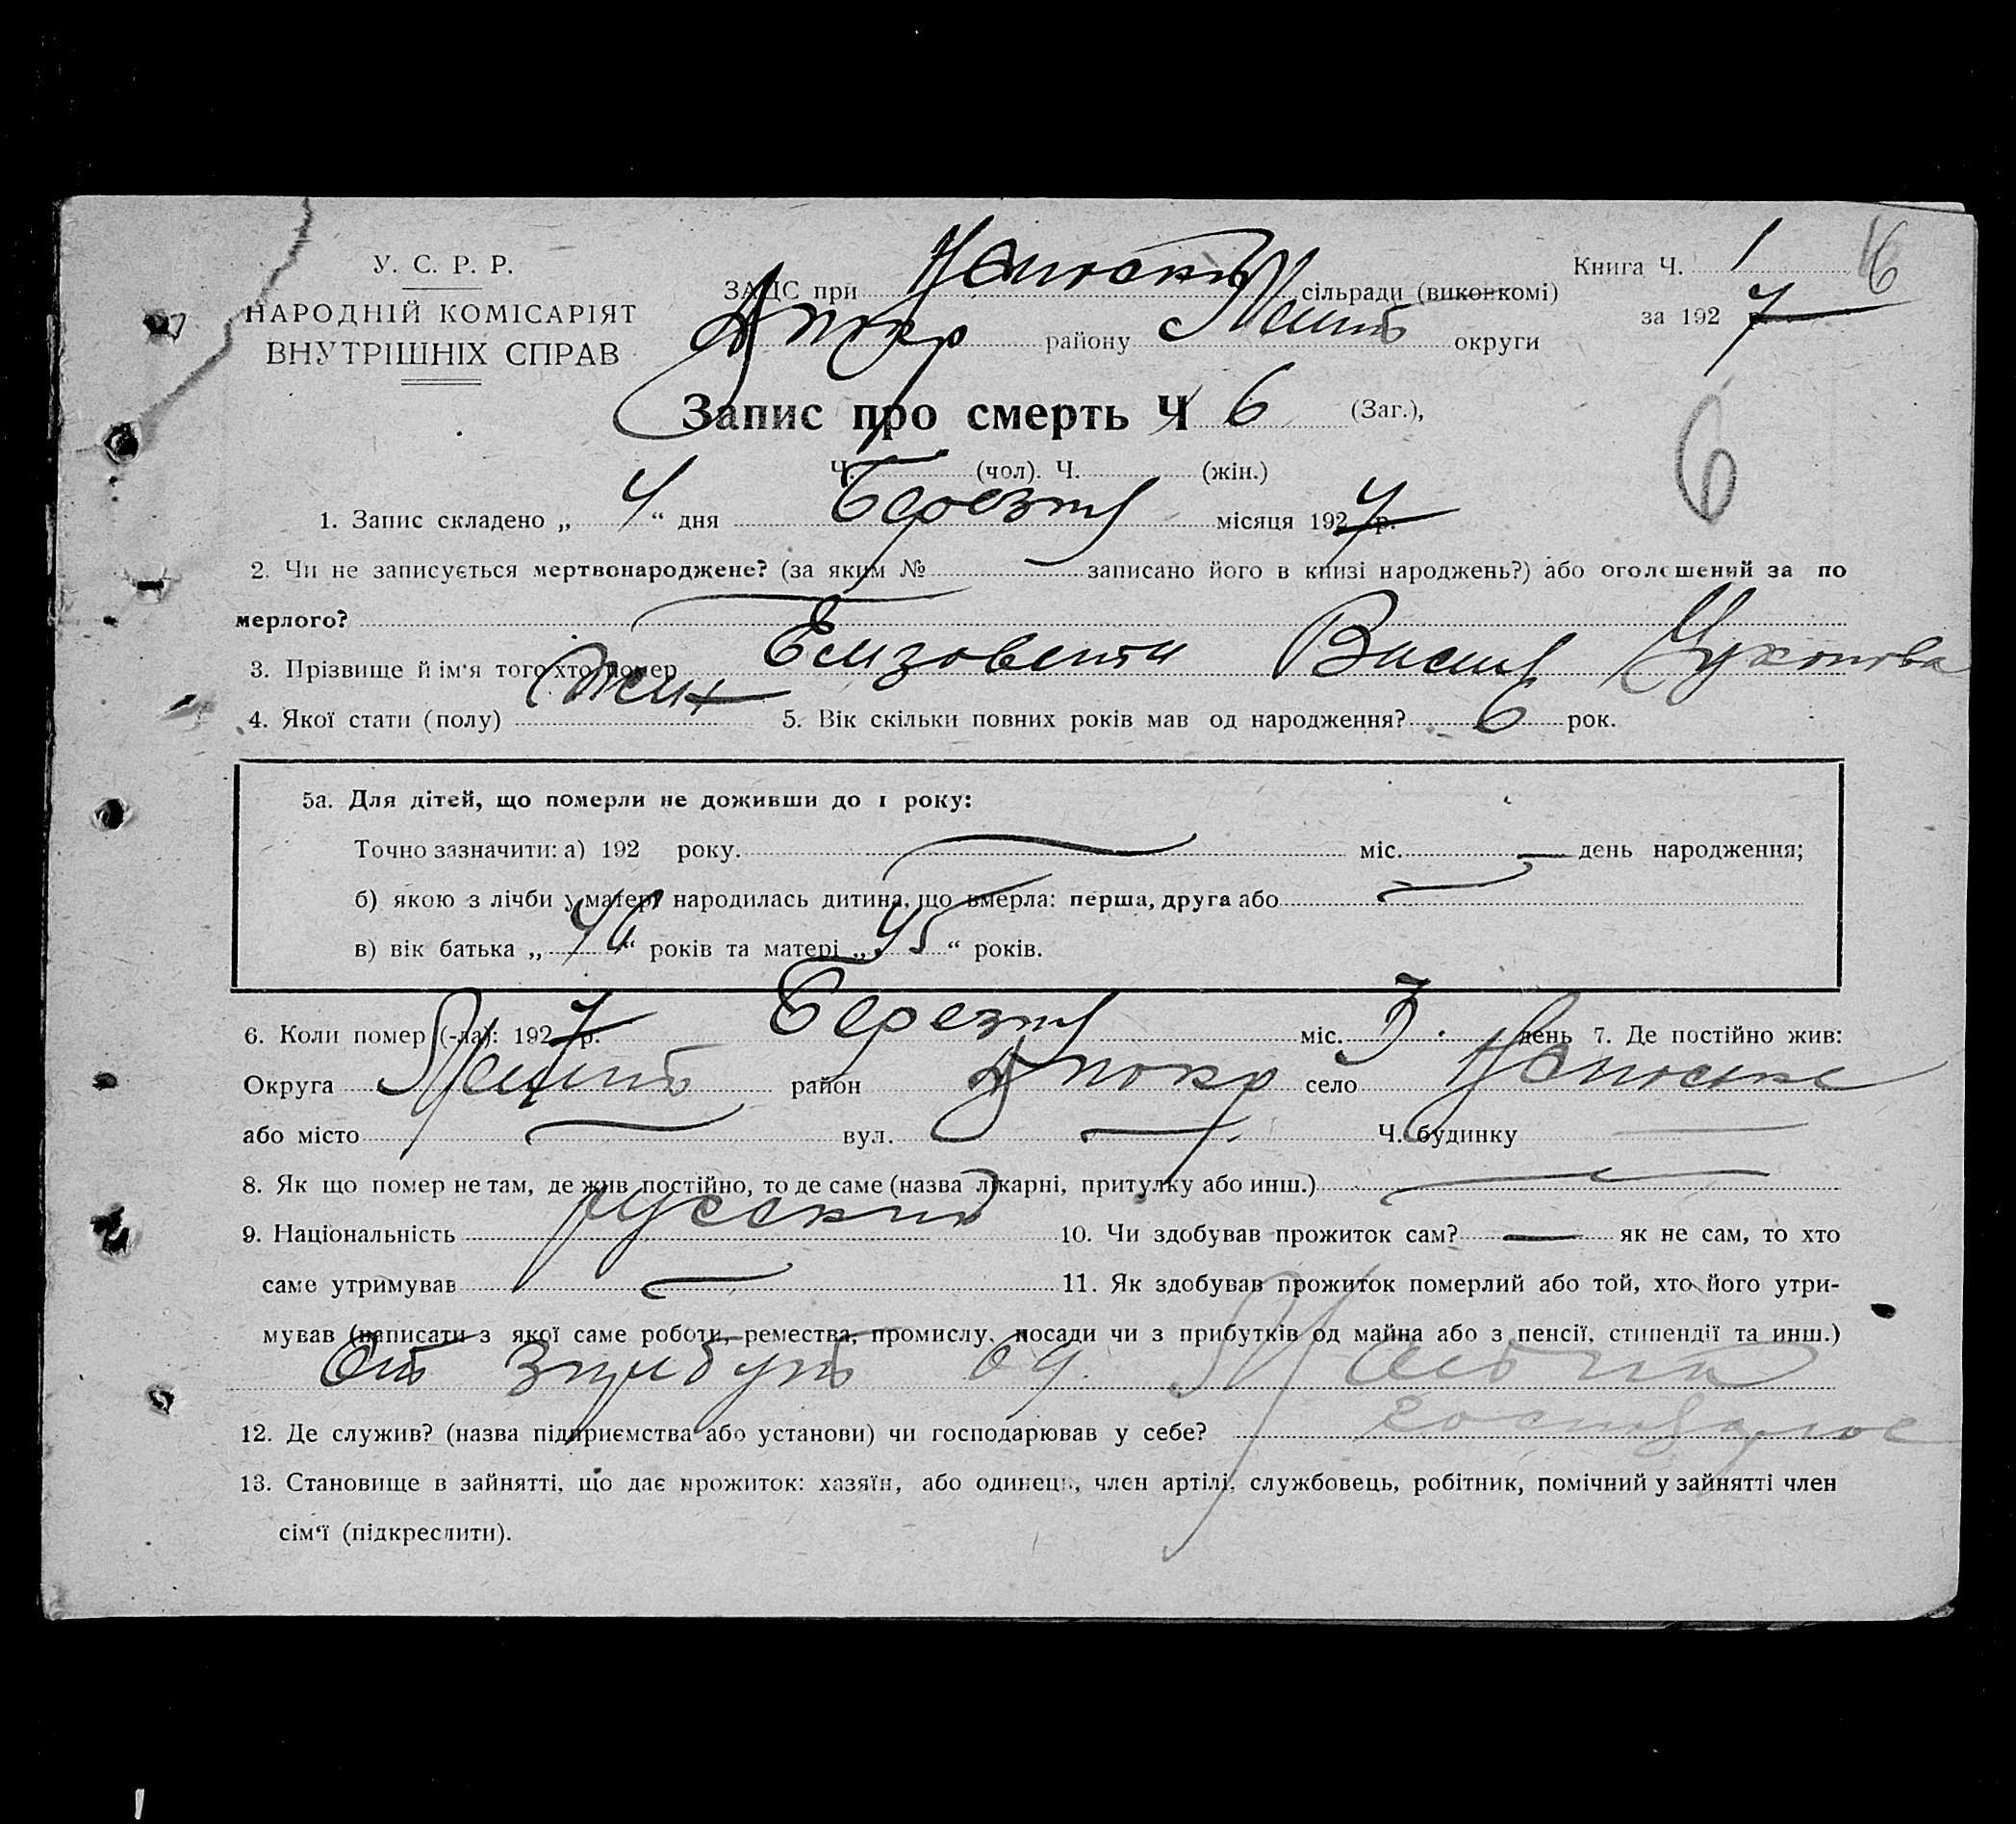 У. С. Р. Р.
НАРОДНІЙ КОМІСАРІЯТ
ВНУТРІШНІХ СПРАВ
ЗАЦС при сільради (виконкомі)
району округи
Книга Ч. 1 6
за 1927 р.
Запис про смерть Ч 6 (Заг.),
6
Ч. (чол). Ч. (жін.)
1. Запис складено „ 4 “ дня Березня місяця 1927 р.
2. Чи не записується мертвонароджене? (за яким № записано його в книзі народжень?) або оголошений за по
мерлого?
3. Прізвище й ім'я того хто помер Елизовента Васил
4. Якої стати (полу) жін 5. Вік скільки повних років мав од народження? 6 рок.
5а. Для дітей, що померли не доживши до 1 року:
Точно зазначити: а) 192 року. міс. день народження;
б) якою з лічби у матері народилась дитина, що вмерла: перша, друга або
в) вік батька „ 46 “ років та матері „ 45 “ років.
6. Коли помер (-ла): 1927 р. Березня міс. 3 день 7. Де постійно жив:
Округа район село
або місто вул. Ч. будинку
8. Як що помер не там, де жив постійно, то де саме (назва лікарні, притулку або инш.)
9. Національність русский 10. Чи здобував прожиток сам? — як не сам, то хто
саме утримував 11. Як здобував прожиток померлий або той, хто його утри-
мував (написати з якої саме роботи, ремества, промислу, посади чи з прибутків од майна або з пенсії, стипендії та инш.)
од
12. Де служив? (назва підприємства або установи) чи господарював у себе?
13. Становище в зайнятті, що дає прожиток: хазяїн, або одинець, член артілі, службовець, робітник, помічний у зайнятті член
сім'ї (підкреслити).